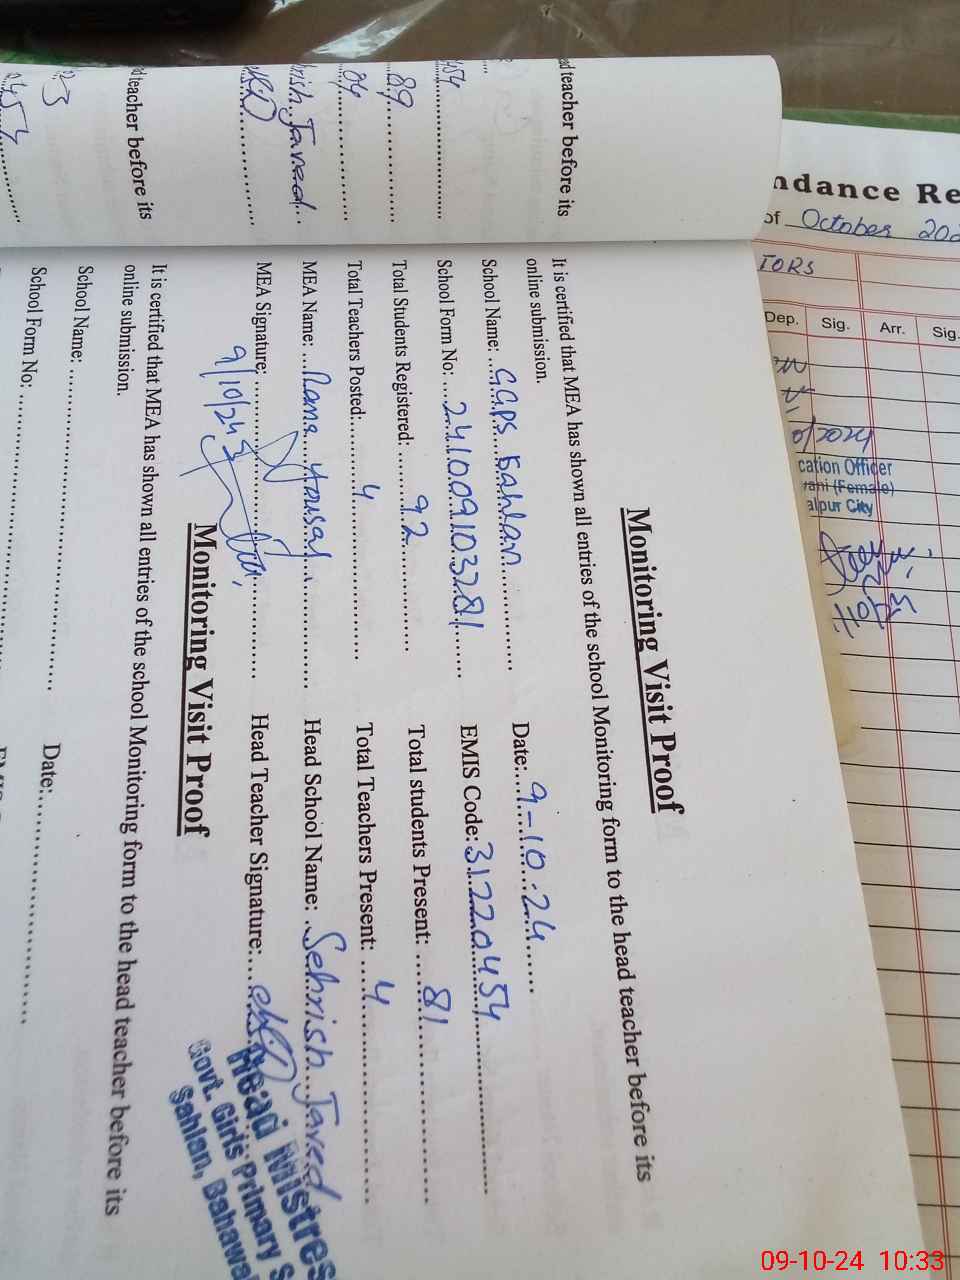 Monitoring Visit Proof
It is certified that MEA has shown all entries of the school Monitoring form to the head teacher before its
online submission.
School Name: G.G.P.S Bahlan Date: 9-10-24
School Form No: 2410091037281 EMIS Code: 31220454
Total Students Registered: 92 Total students Present: 81
Total Teachers Posted: 4 Total Teachers Present: 4
MEA Name: Rana Yousaf Head School Name: Sehrish Javed
MEA Signature: Head Teacher Signature:
9/10/24
Head Mistres
Govt. Girls Primary S
Sahlan, Bahawal
Monitoring Visit Proof
It is certified that MEA has shown all entries of the school Monitoring form to the head teacher before its
online submission.
School Name: Date:
School Form No:
ad teacher before its
454
89
04
rish Javed
d teacher before its
ndance Re
of October 202
TORS
Dep. Sig. Arr. Sig.
0/2024
cation Officer
rani (Female)
alpur City
09-10-24 10:33